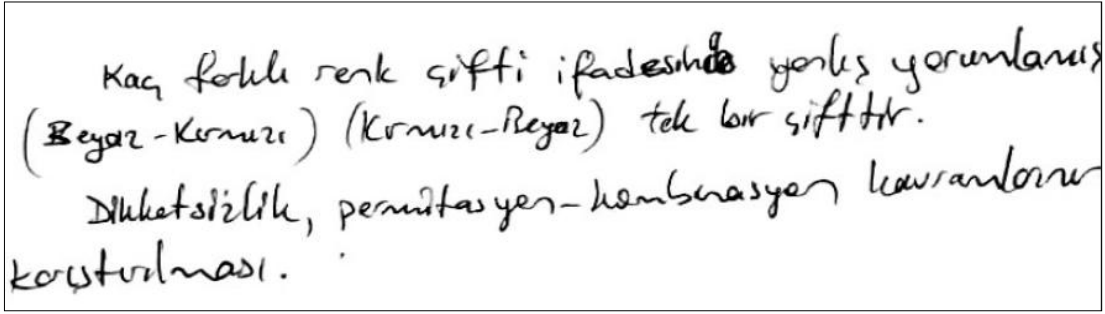 Kaç farklı renk çifti ifadesinde yanlış yorumlamış
(Beyaz-Kırmızı) (Kırmızı-Beyaz) tek bir çifttir.
Dikketsizlik, permütasyon-kombinasyon kavramlarının
karıştırılması.